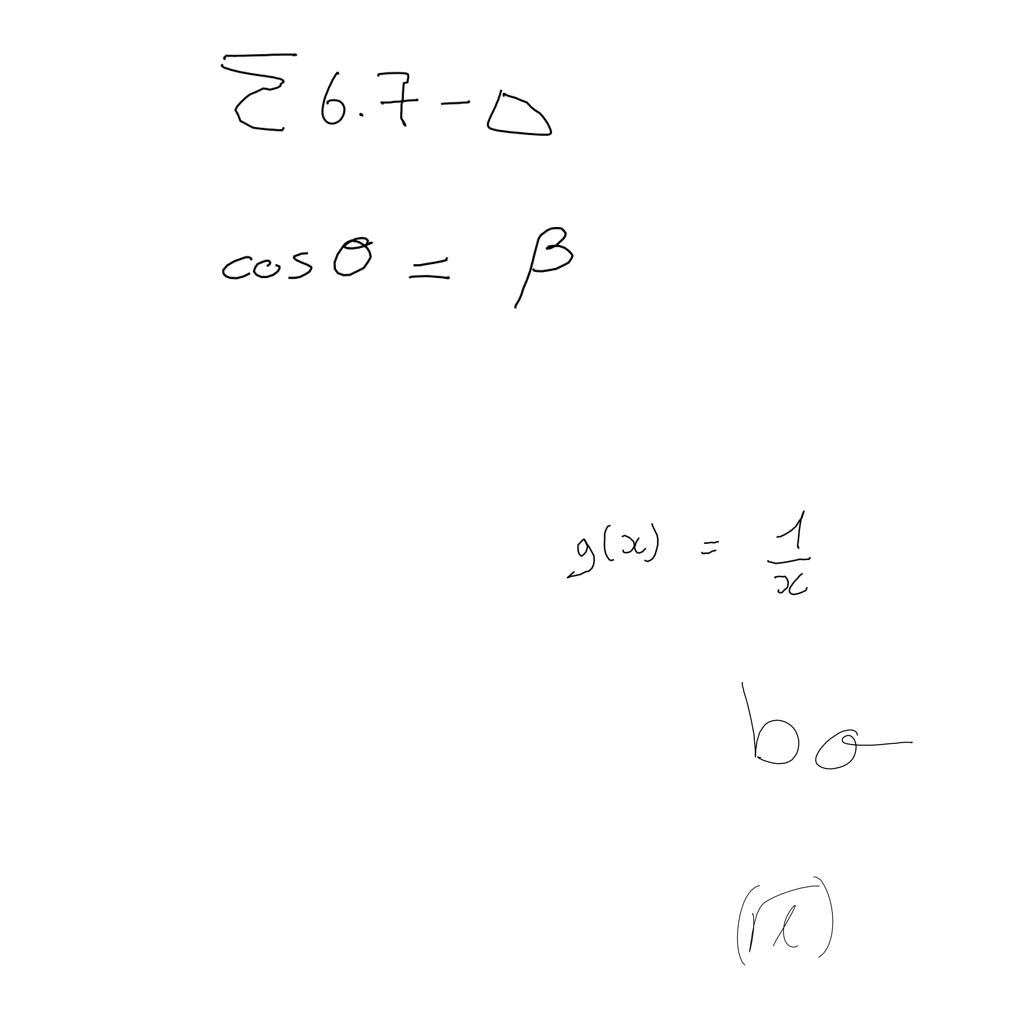 Σ 6.7 - Δ
cos θ = β
g(x) = 1/x
b σ
(√x)